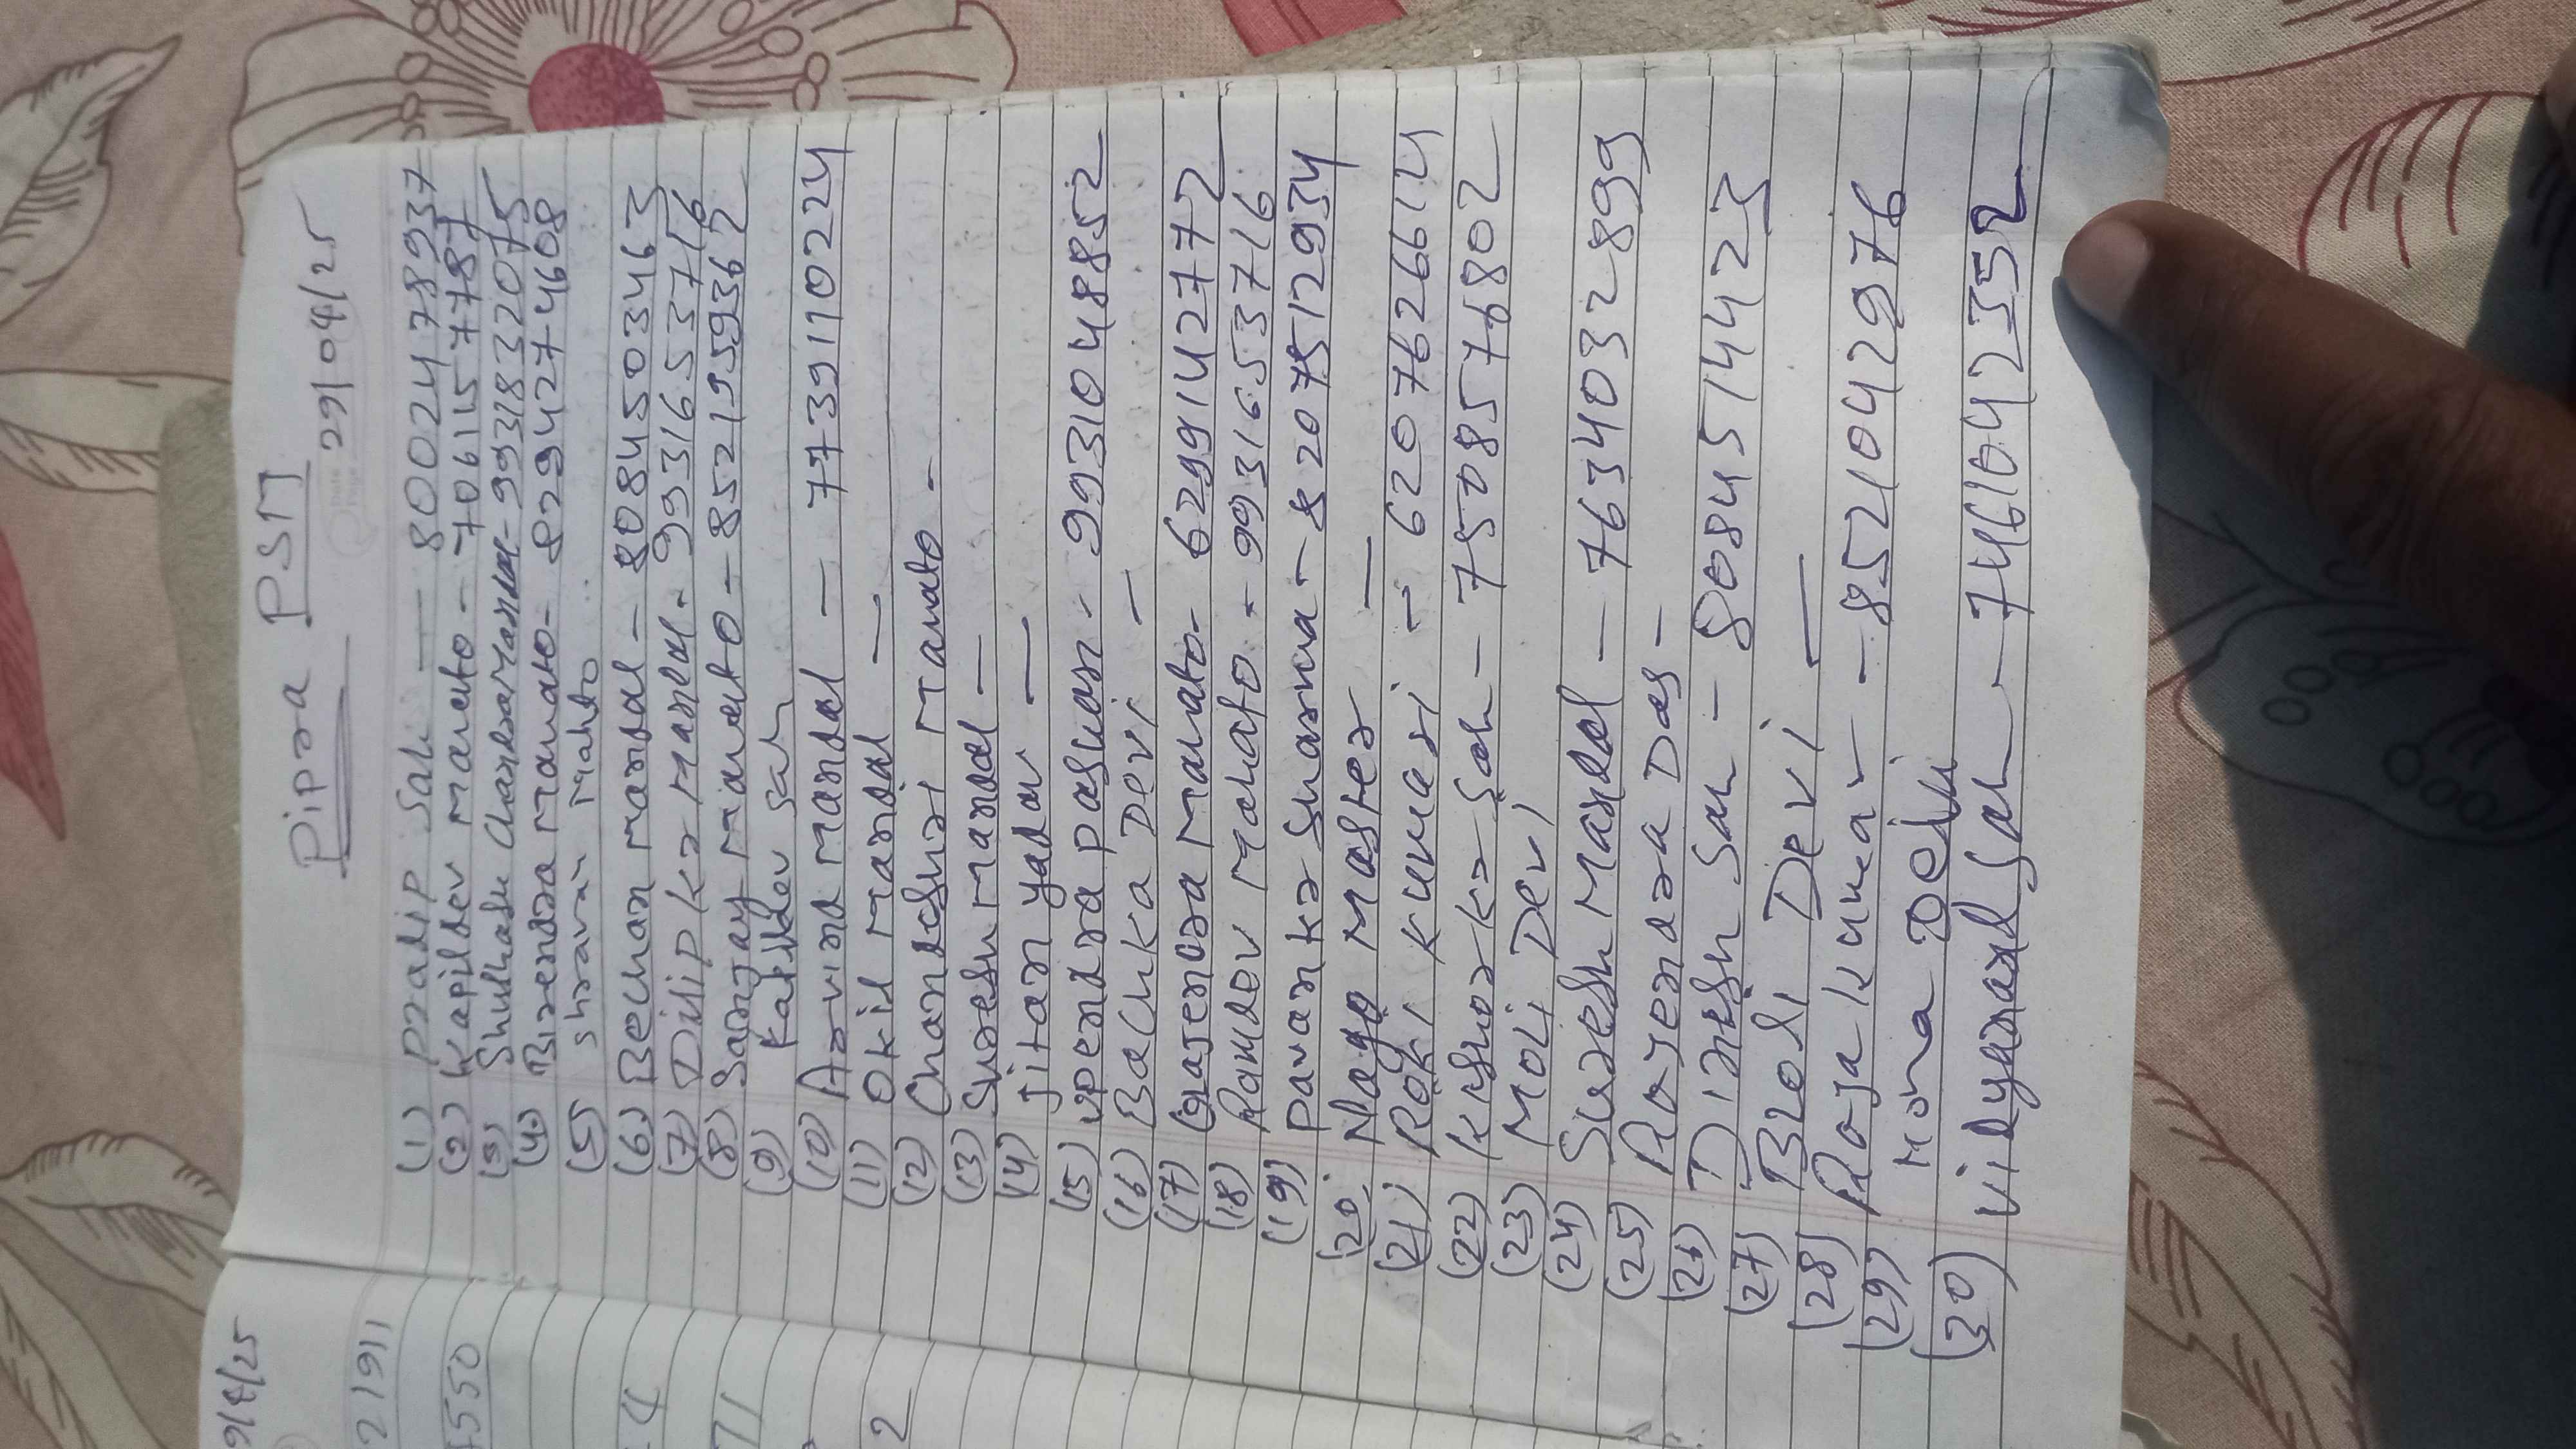 Pipra PSM
29/08/25
(1) Pradip Sah — 8002478937
(2) Kapildev Mahato - 7061157787
(3) Shubhash Chandra Mandal - 9931832075
(4) Birendra Mahato - 8294274608
(5) Shravan Mahto
(6) Bechan Mandal - 8084503463
(7) Dilip kr Mandal - 9931653716
(8) Sanjay Mahato - 8521959362
(9) Kapildev Sah
(10) Arvind Mandal — 7739110224
(11) Okil Mandal —
(12) Chandeshwr Mahato -
(13) Suresh Mandal —
(14) Jitan yadav —
(15) upendra paswan - 9931048852
(16) Bachka Devi —
(17) Gajendra Mahato - 6299142772
(18) Ramdev Mahato - 9931653716
(19) Pavan kr Sharma - 8207512934
(20) Nago Master —
(21) Roki Kumari - 6207626614
(22) Kishor kr Sah - 7508576802
(23) Moli Devi
(24) Suresh Mandal - 7634032899
(25) Rajendra Das -
(26) Dinesh Sah - 8084514423
(27) Broli Devi —
(28) Roja kumar - 8521042976
(29) Mona Devi
(30) Vidyanand Sah - 7461042352
9/8/25
21911
4550
71
2